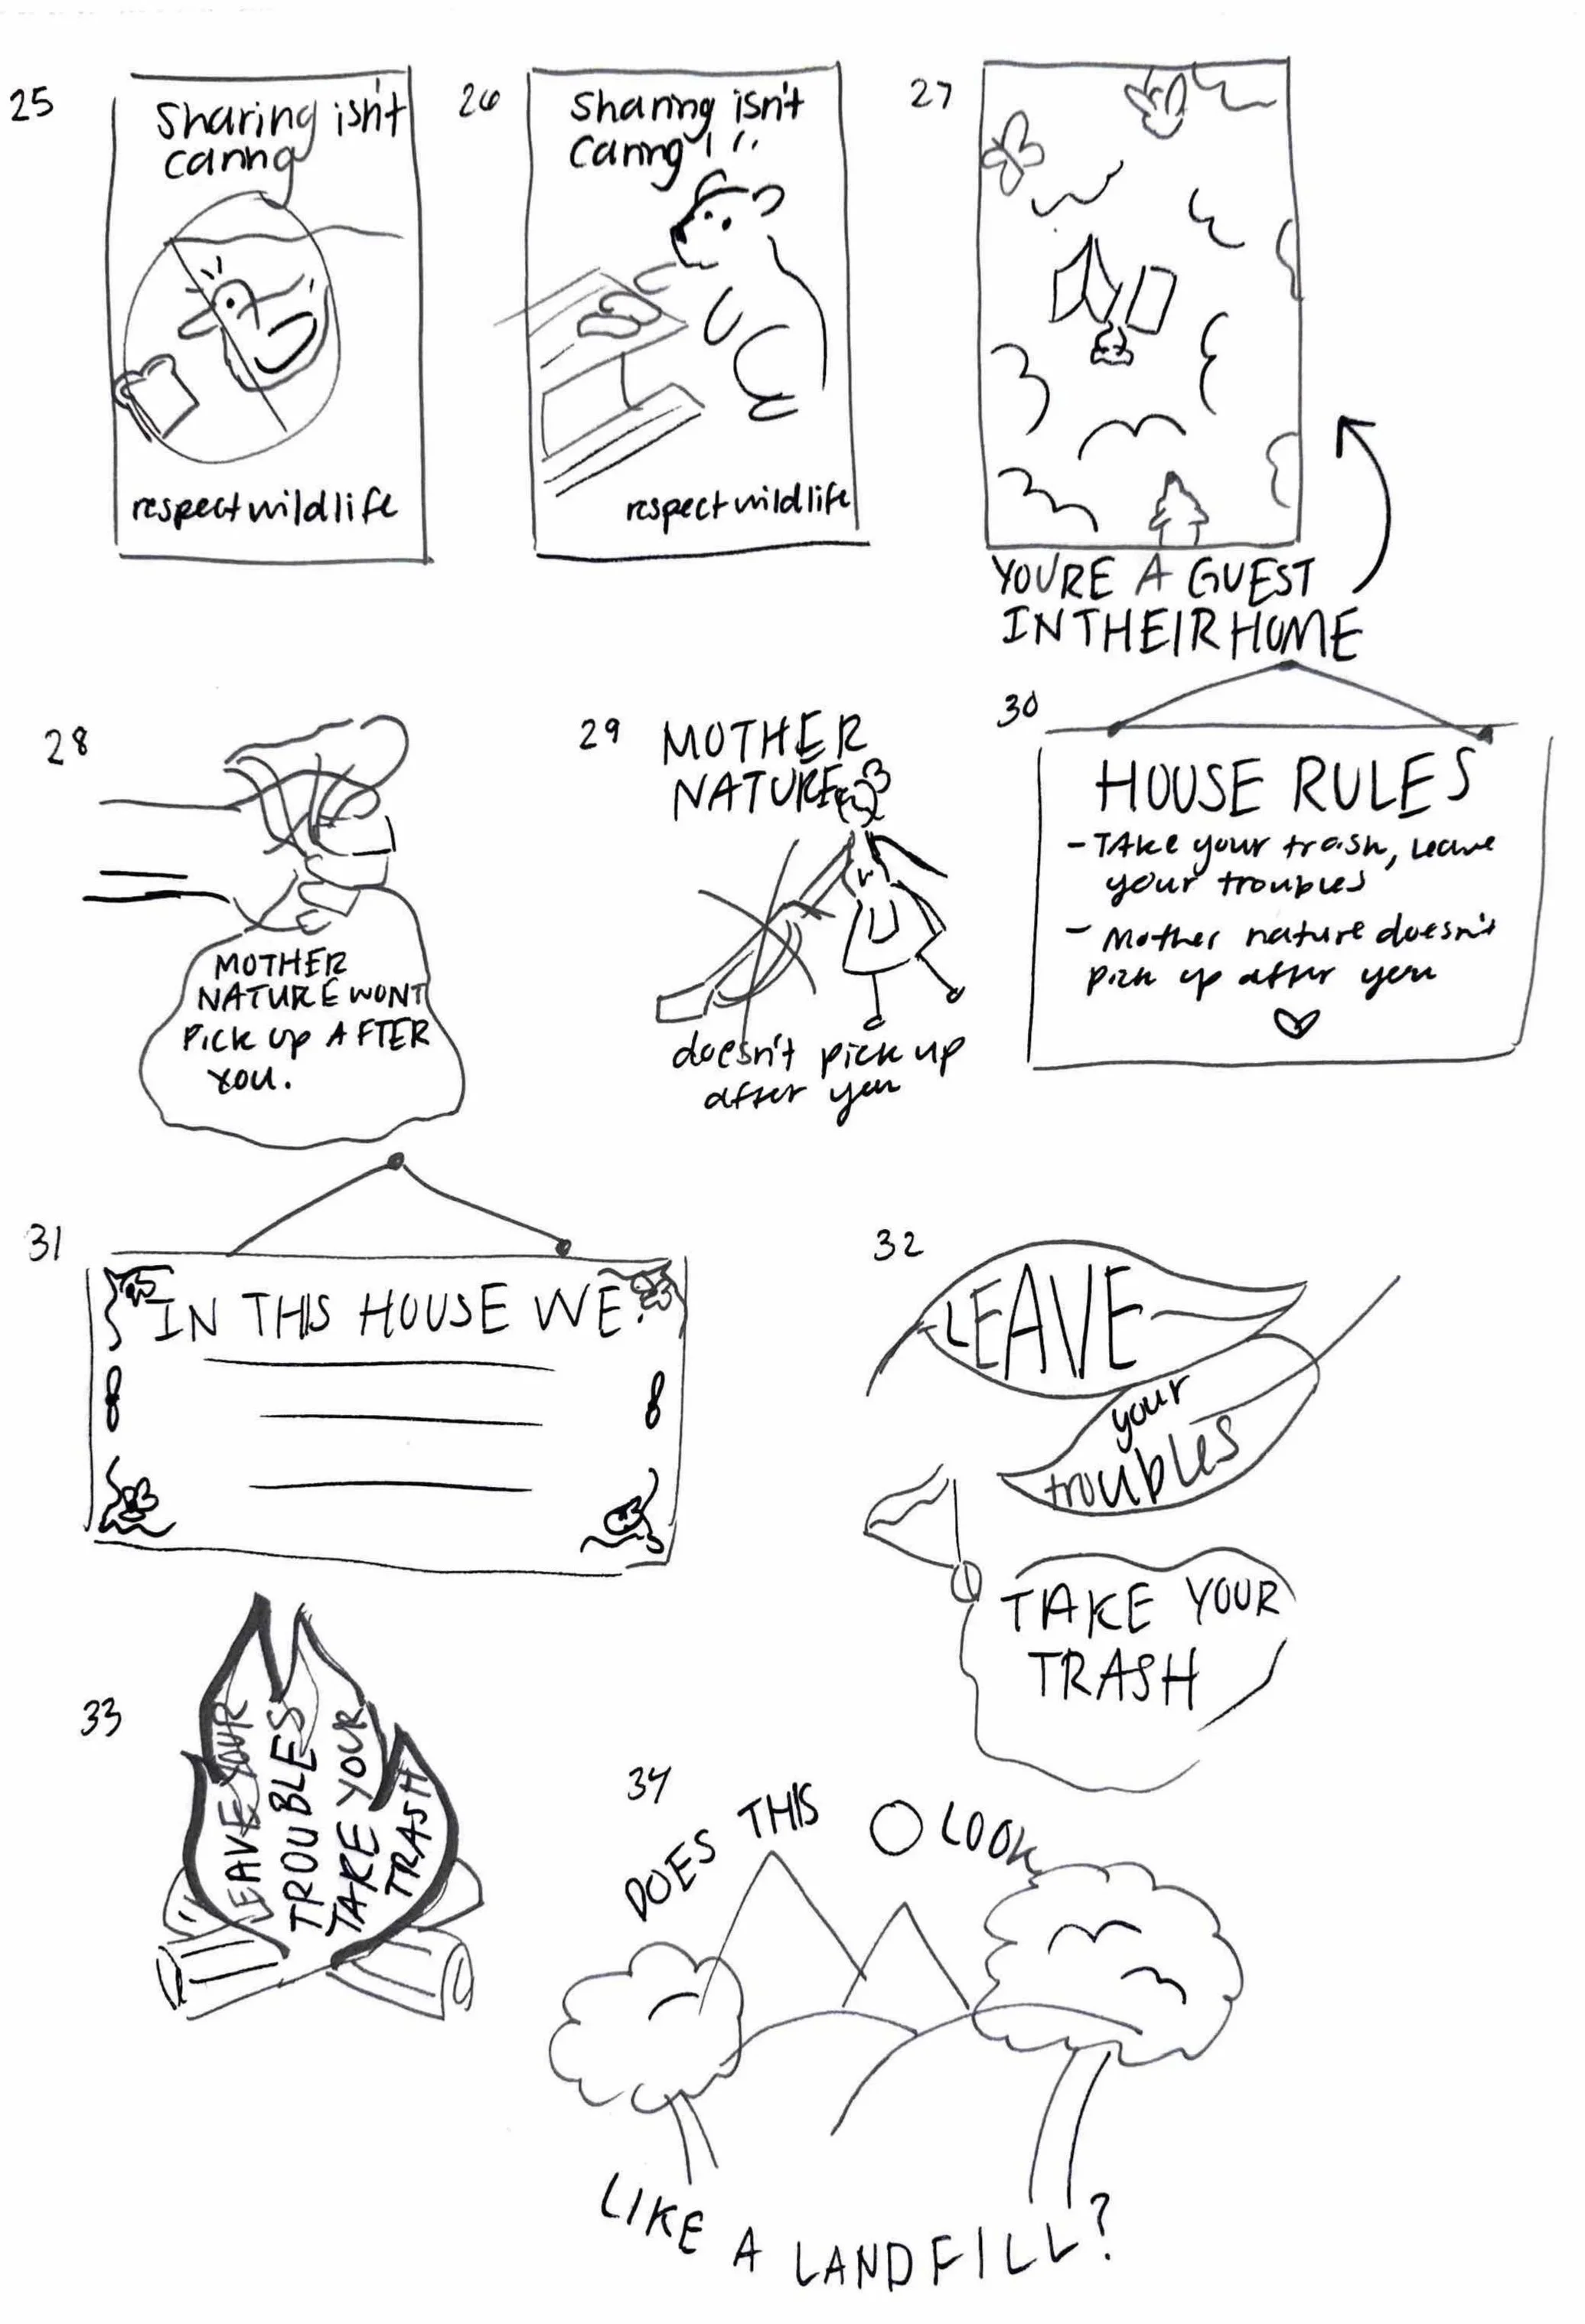 25
Sharing isn't
caring
respect wildlife
26
Sharing isn't
caring!!!
respect wildlife
27
YOU'RE A GUEST
IN THEIR HOME
28
MOTHER
NATURE WONT
PICK UP AFTER
YOU.
29
MOTHER
NATURE
doesn't pick up
after you
30
HOUSE RULES
- TAke your trash, leave
your troubles
- Mother nature doesn't
pick up after you
31
IN THIS HOUSE WE:
32
LEAVE
your
troubles
TAKE YOUR
TRASH
33
LEAVE YOUR
TROUBLES
TAKE YOUR
TRASH
34
DOES THIS LOOK
LIKE A LANDFILL?